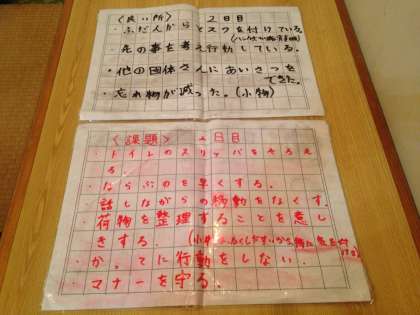 〈良い所〉 2日目
・ふだんからマスクを付けている。
・先の事を考え行動している。
・他の団体さんにあいさつを
できた。
・忘れ物が減った。(小物)
〈課題〉 2日目
・トイレのスリッパをそろえ
る
・ならぶのを早くする。
・話しながらの移動をなくす。
・荷物を整理することを意し
きする。(小
・かってに行動をしない。
・マナーを守る。